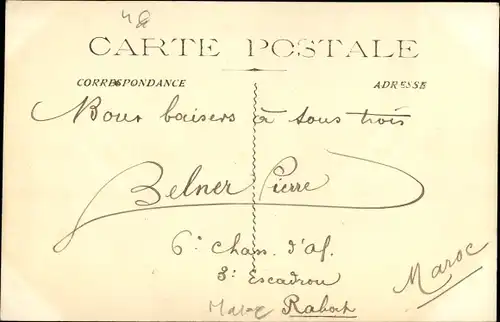 CARTE POSTALE
CORRESPONDANCE ADRESSE
Bour baisers à tous trois
Belner Pierre
6e Chass. d'Af.
3e Escadron
Maroc
Maroc Rabat